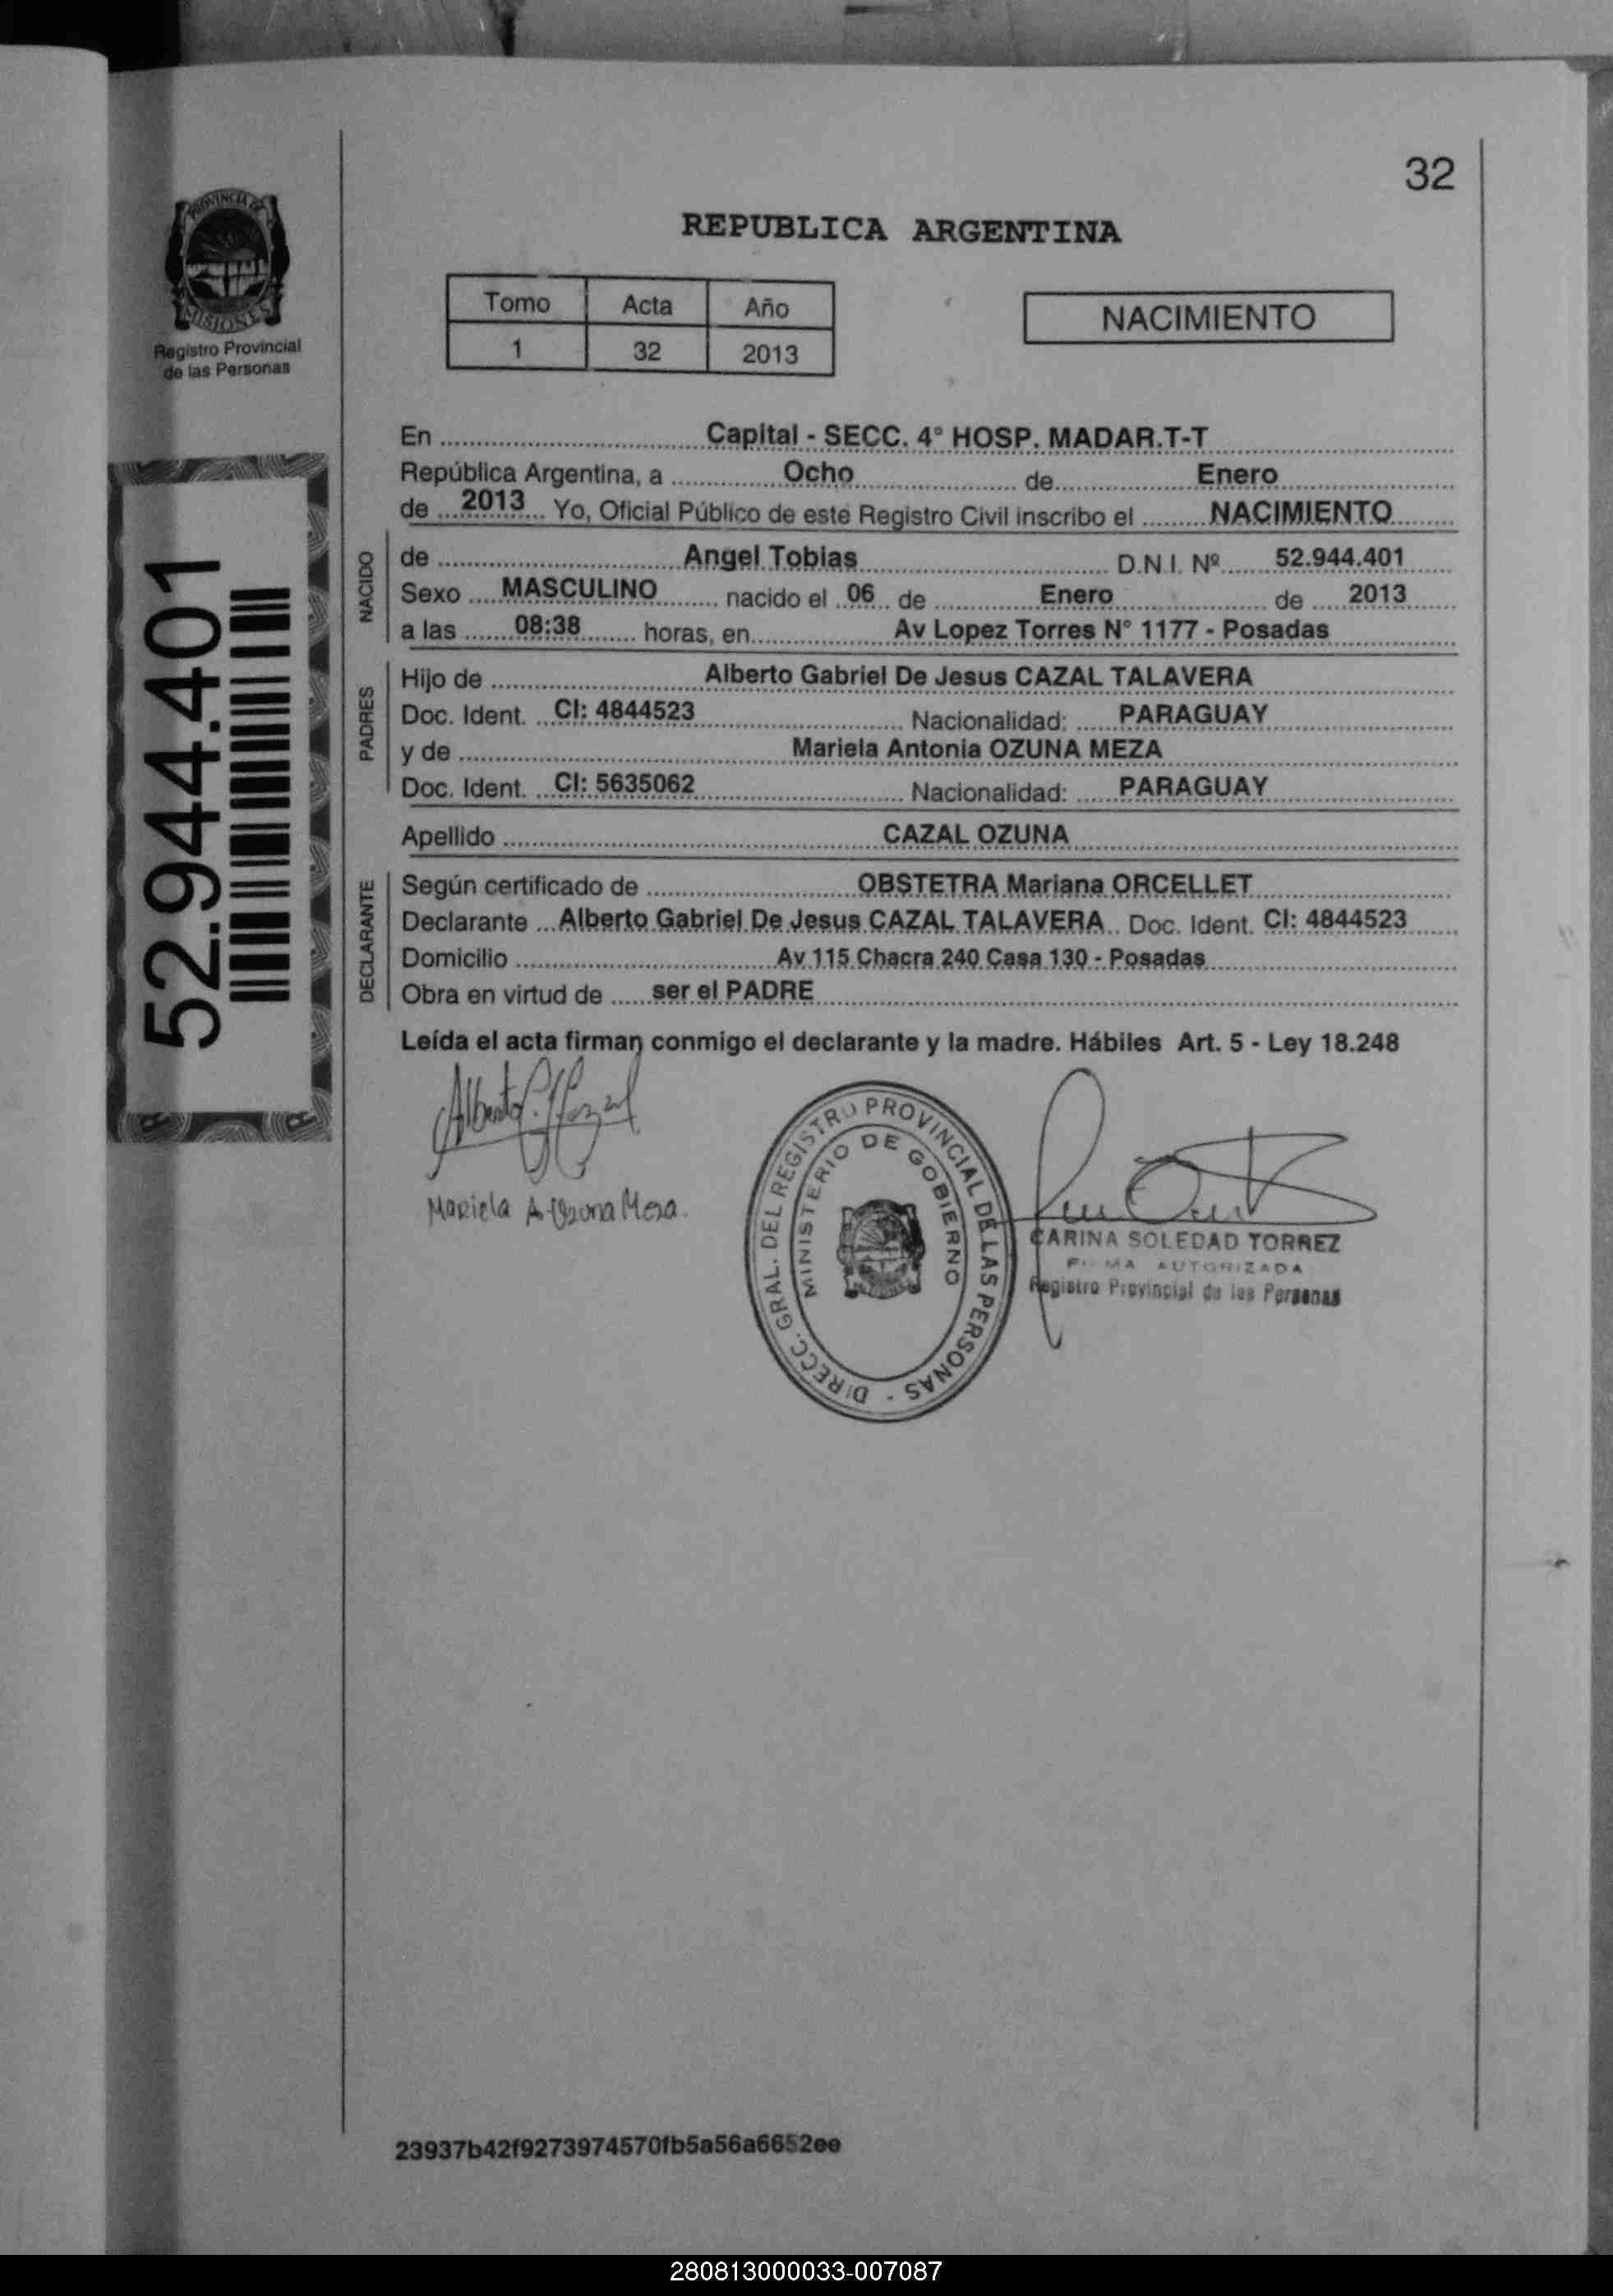 32
PROVINCIA DE
MISIONES
Registro Provincial
de las Personas
REPUBLICA ARGENTINA
Tomo Acta Año
1 32 2013
NACIMIENTO
52.944.401
En Capital - SECC. 4° HOSP. MADAR.T-T
República Argentina, a Ocho de Enero
de 2013 Yo, Oficial Público de este Registro Civil inscribo el NACIMIENTO
NACIDO
de Angel Tobias D.N.I. Nº 52.944.401
Sexo MASCULINO nacido el 06 de Enero de 2013
a las 08:38 horas, en Av Lopez Torres N° 1177 - Posadas
PADRES
Hijo de Alberto Gabriel De Jesus CAZAL TALAVERA
Doc. Ident. CI: 4844523 Nacionalidad: PARAGUAY
y de Mariela Antonia OZUNA MEZA
Doc. Ident. CI: 5635062 Nacionalidad: PARAGUAY
Apellido CAZAL OZUNA
DECLARANTE
Según certificado de OBSTETRA Mariana ORCELLET
Declarante Alberto Gabriel De Jesus CAZAL TALAVERA Doc. Ident. CI: 4844523
Domicilio Av 115 Chacra 240 Casa 130 - Posadas
Obra en virtud de ser el PADRE
Leída el acta firman conmigo el declarante y la madre. Hábiles Art. 5 - Ley 18.248
Alberto
Mariela A. Ozuna Meza.
DIRECC. GRAL. DEL REGISTRO PROVINCIAL DE LAS PERSONAS -
MINISTERIO DE GOBIERNO
CARINA SOLEDAD TORREZ
FIRMA AUTORIZADA
Registro Provincial de las Personas
23937b42f9273974570fb5a56a6652ee
280813000033-007087